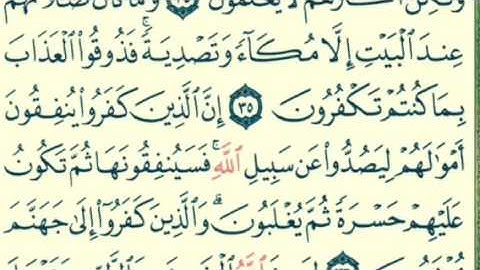 وَلَٰكِنَّ أَكْثَرَهُمْ لَا يَعْلَمُونَ ٣٤ وَمَا كَانَ صَلَاتُهُمْ
عِندَ ٱلْبَيْتِ إِلَّا مُكَآءً وَتَصْدِيَةً ۚ فَذُوقُوا۟ ٱلْعَذَابَ
بِمَا كُنتُمْ تَكْفُرُونَ ٣٥ إِنَّ ٱلَّذِينَ كَفَرُوا۟ يُنفِقُونَ
أَمْوَٰلَهُمْ لِيَصُدُّوا۟ عَن سَبِيلِ ٱللَّهِ ۚ فَسَيُنفِقُونَهَا ثُمَّ تَكُونُ
عَلَيْهِمْ حَسْرَةً ثُمَّ يُغْلَبُونَ ۗ وَٱلَّذِينَ كَفَرُوٓا۟ إِلَىٰ جَهَنَّمَ